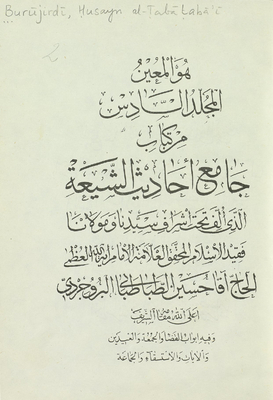 Burūjirdī, Ḥusayn al-Ṭabāṭabā'ī
2
هو المعين
المجلد السادس
من كتاب
جامع أحاديث الشيعة
الذي ألف تحت اشراف سيدنا ومولانا
فقيد الاسلام المحقق العلامة الامام آية الله العظمى
الحاج آقا حسين الطباطبائي البروجردي
اعلى الله مقامه الشريف
وفيه ابواب القضاء والجمعة والعيدين
والآيات والاستسقاء والجماعة